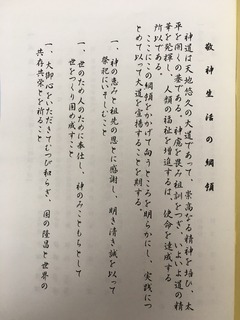 敬神生活の綱領
神道は天地悠久の大道であって、崇高なる精神を培ひ、太
平を開くの基である。神慮を畏み祖訓をつぎ、いよいよ道の精
華を発揮し、人類の福祉を増進するは、使命を達成する
所以である。
ここにこの綱領をかかげて向ふところを明らかにし、実践につ
とめて以て大道を宣揚することを期する。
一、神の恵みと祖先の恩とに感謝し、明き清き誠を以って
祭祀にいそしむこと
一、世のため人のために奉仕し、神のみこともちとして
世をつくり固め成すこと
一、大御心をいただきてむつび和らぎ、国の隆昌と世界の
共存共栄とを祈ること